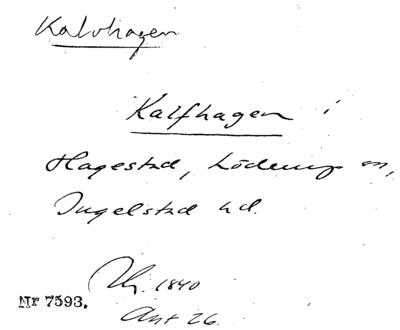 Kalvhagen
Kalfhagen i
Hagestad, Löderup sn,
Ingelstad hd.
1840
Nr 7593.
Ant 26.